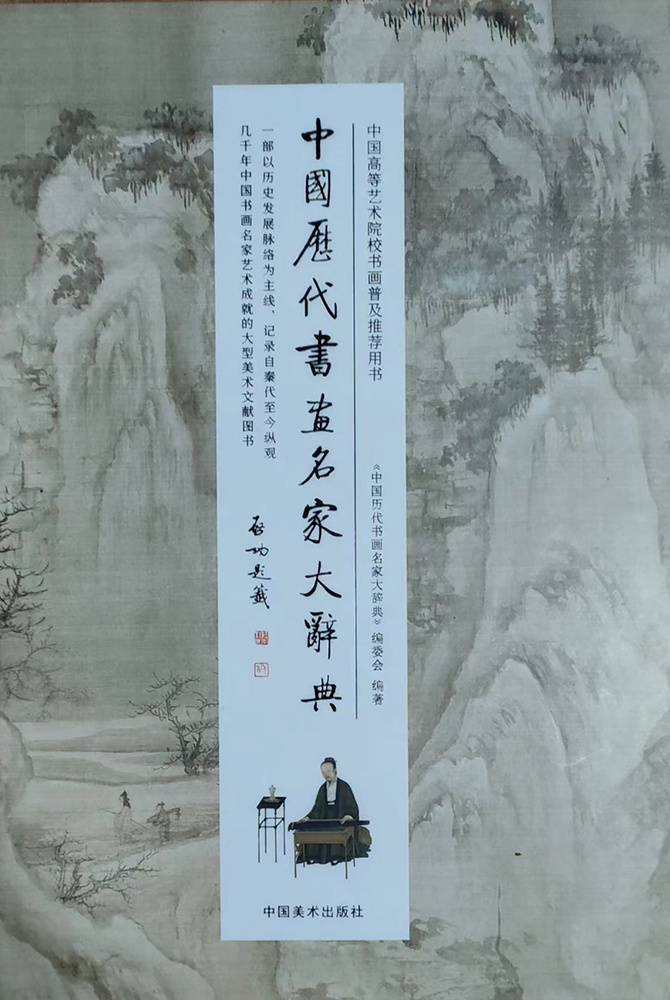 中国高等艺术院校书画普及推荐用书
《中国历代书画名家大辞典》编委会 编著
中國歷代書畫名家大辭典
一部以历史发展脉络为主线，记录自秦代至今纵观
几千年中国书画名家艺术成就的大型美术文献图书
启功题签
中国美术出版社